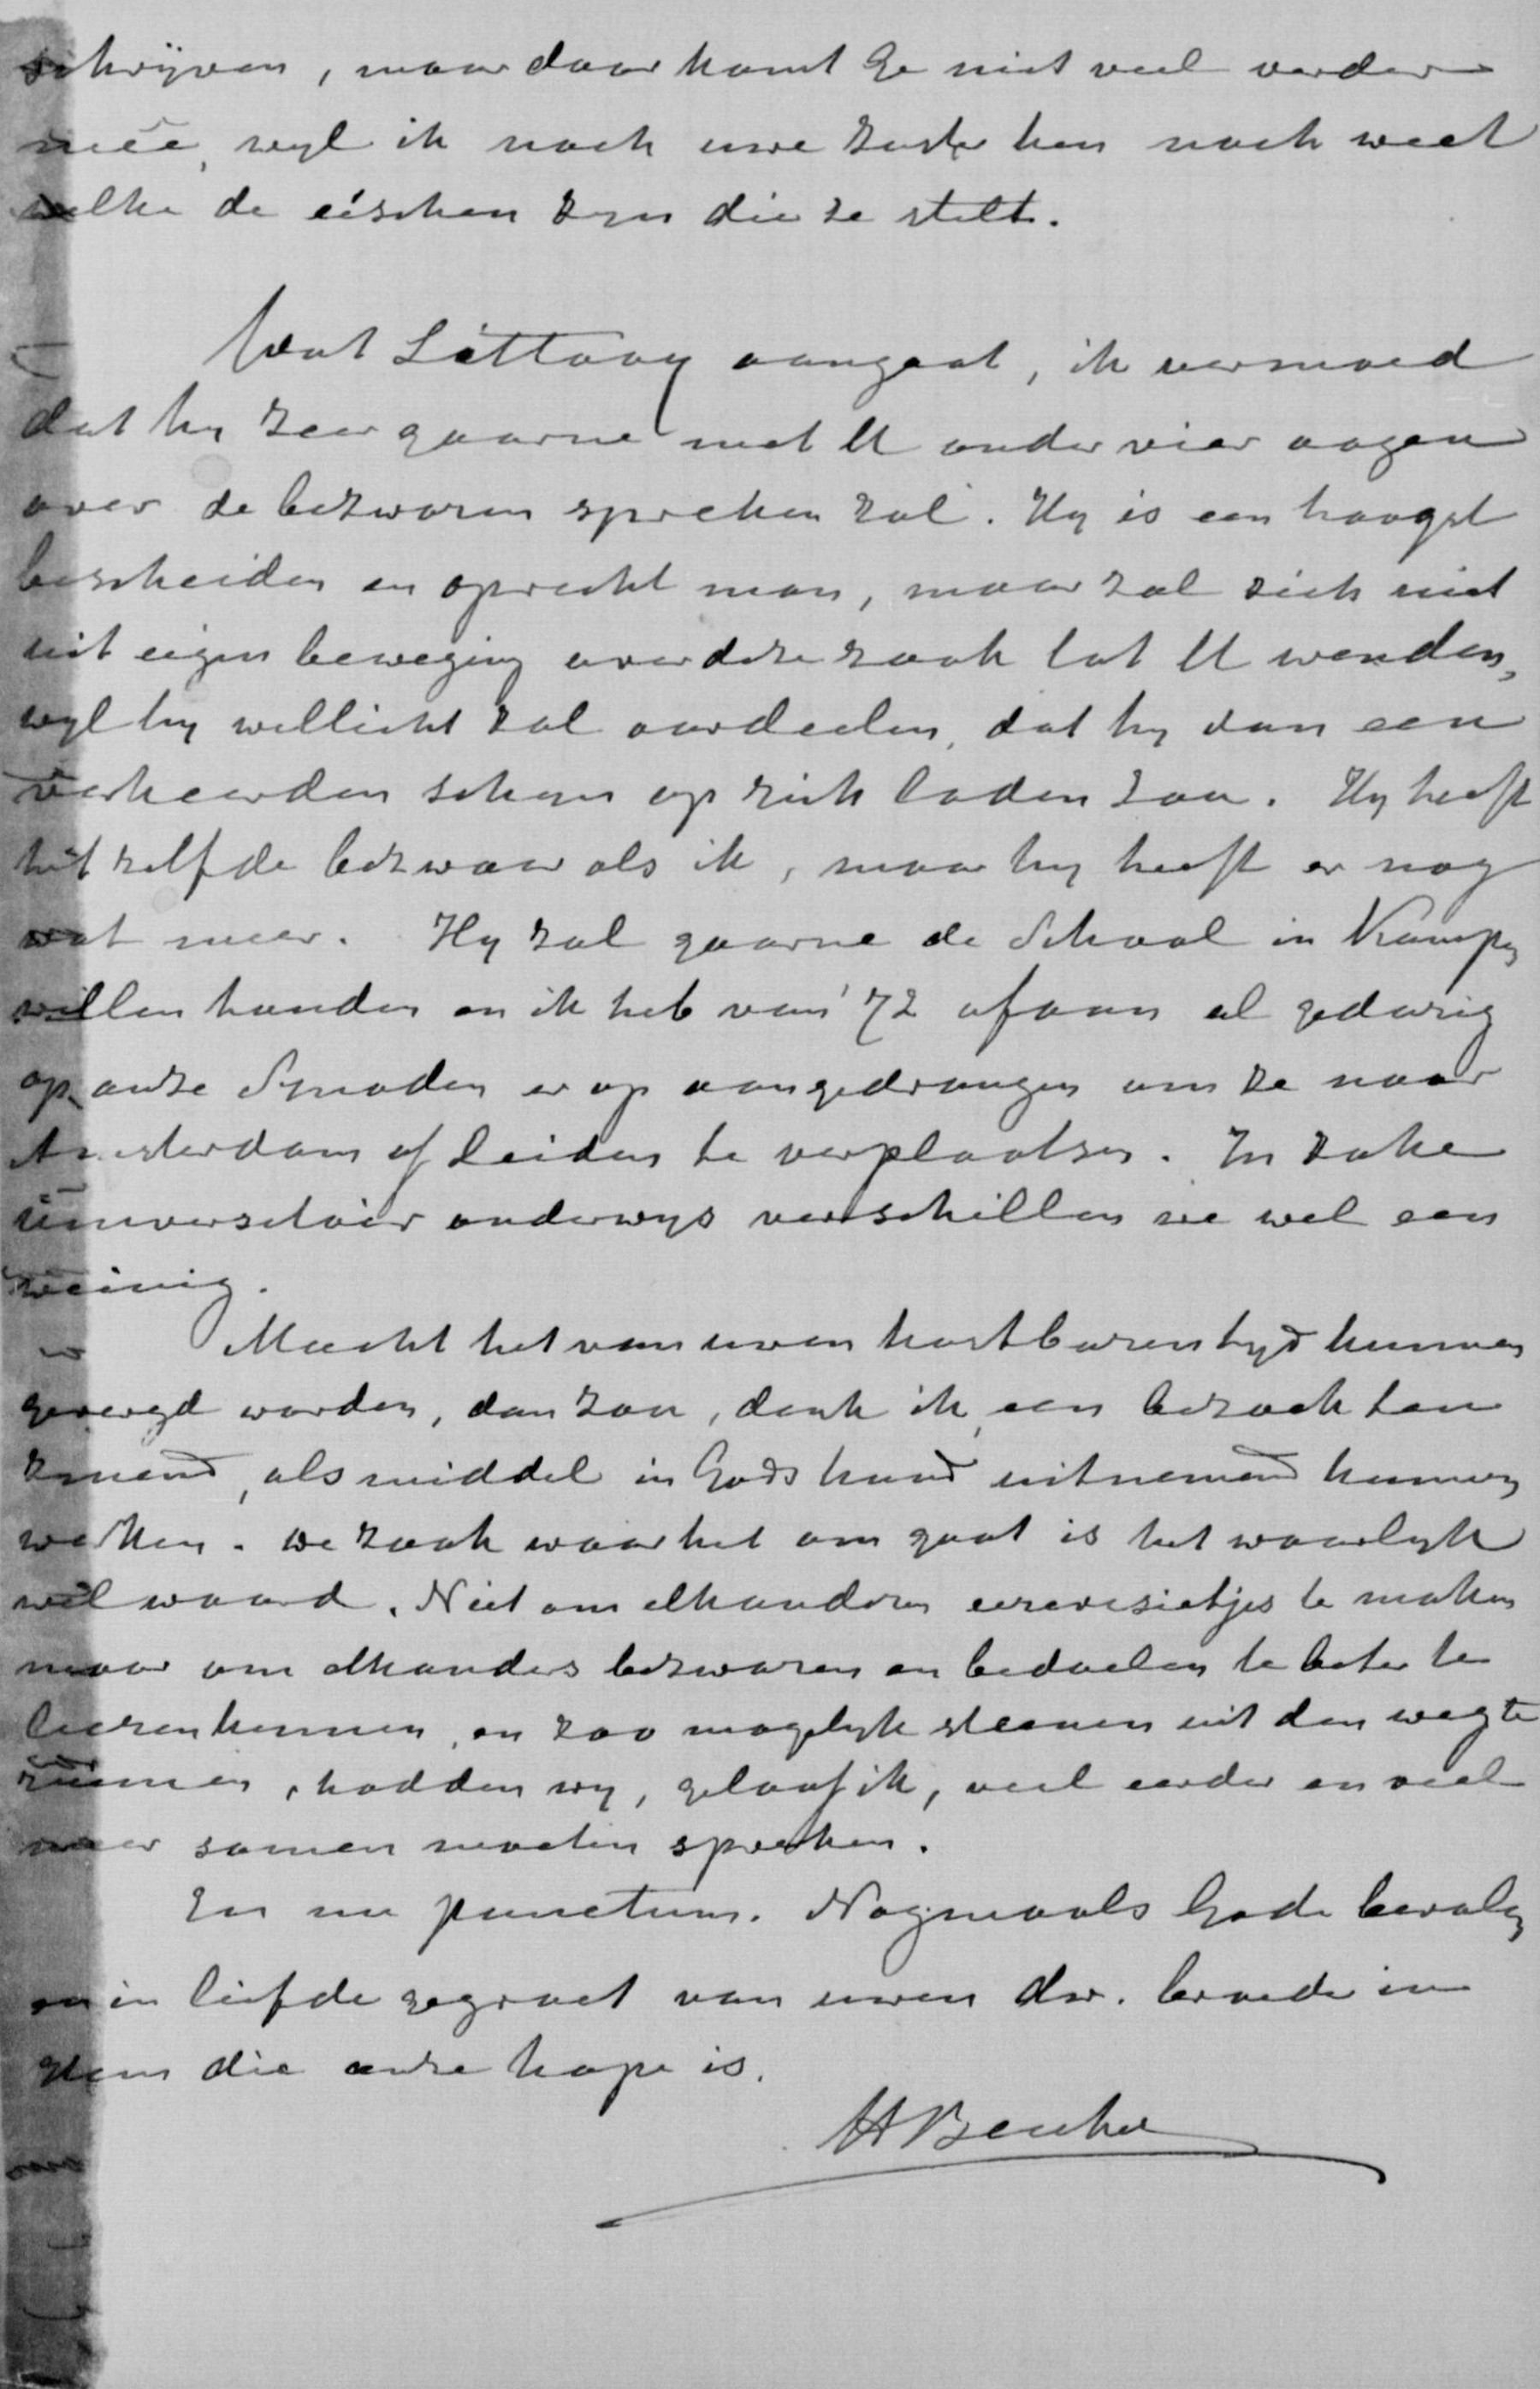 schrijven, maar daar komt Ge niet veel verder
meê, wyl ik noch uwe zuster ken noch weet
welke de eischen zyn die ze stelt.
Wat Littooy aangaat, ik vermoed
dat hy zeer gaarne met U onder vier oogen
over de bezwaren spreken zal. Hy is een hoogst
bescheiden en oprecht man, maar zal zich niet
uit eigen beweging over deze zaak tot U wenden,
wyl hy wellicht zal oordeelen, dat hy dan een
verkeerden schyn op zich laden zou. Hy heeft
het zelfde bezwaar als ik, maar hy heeft er nog
wat meer. Hy zal gaarne de School in Kampen
willen houden en ik heb van '72 afaan al gedurig
op onze Synoden er op aangedrongen om ze naar
Amsterdam of Leiden te verplaatsen. In zake
universitair onderwys verschillen we wel een
weinig.
Mocht het van uwen kostbaren tyd kunnen
gevergd worden, dan zou, denk ik, een bezoek ten
zynend, als middel in Gods hand uitnemend kunnen
werken. De zaak waar het om gaat is het waarlyk
wel waard. Niet om elkanderen eerevisietjes te maken
maar om elkanders bezwaren en bedoelen te beter te
leeren kennen, en zoo mogelyk steenen uit den weg te
ruimen, hadden wy, geloof ik, veel eerder en veel
meer samen moeten spreken.
En nu punctum. Nogmaals Gode bevolen
en in liefde gegroet van uwen dw. broeder in
Hem die onze hope is.
H Beuker